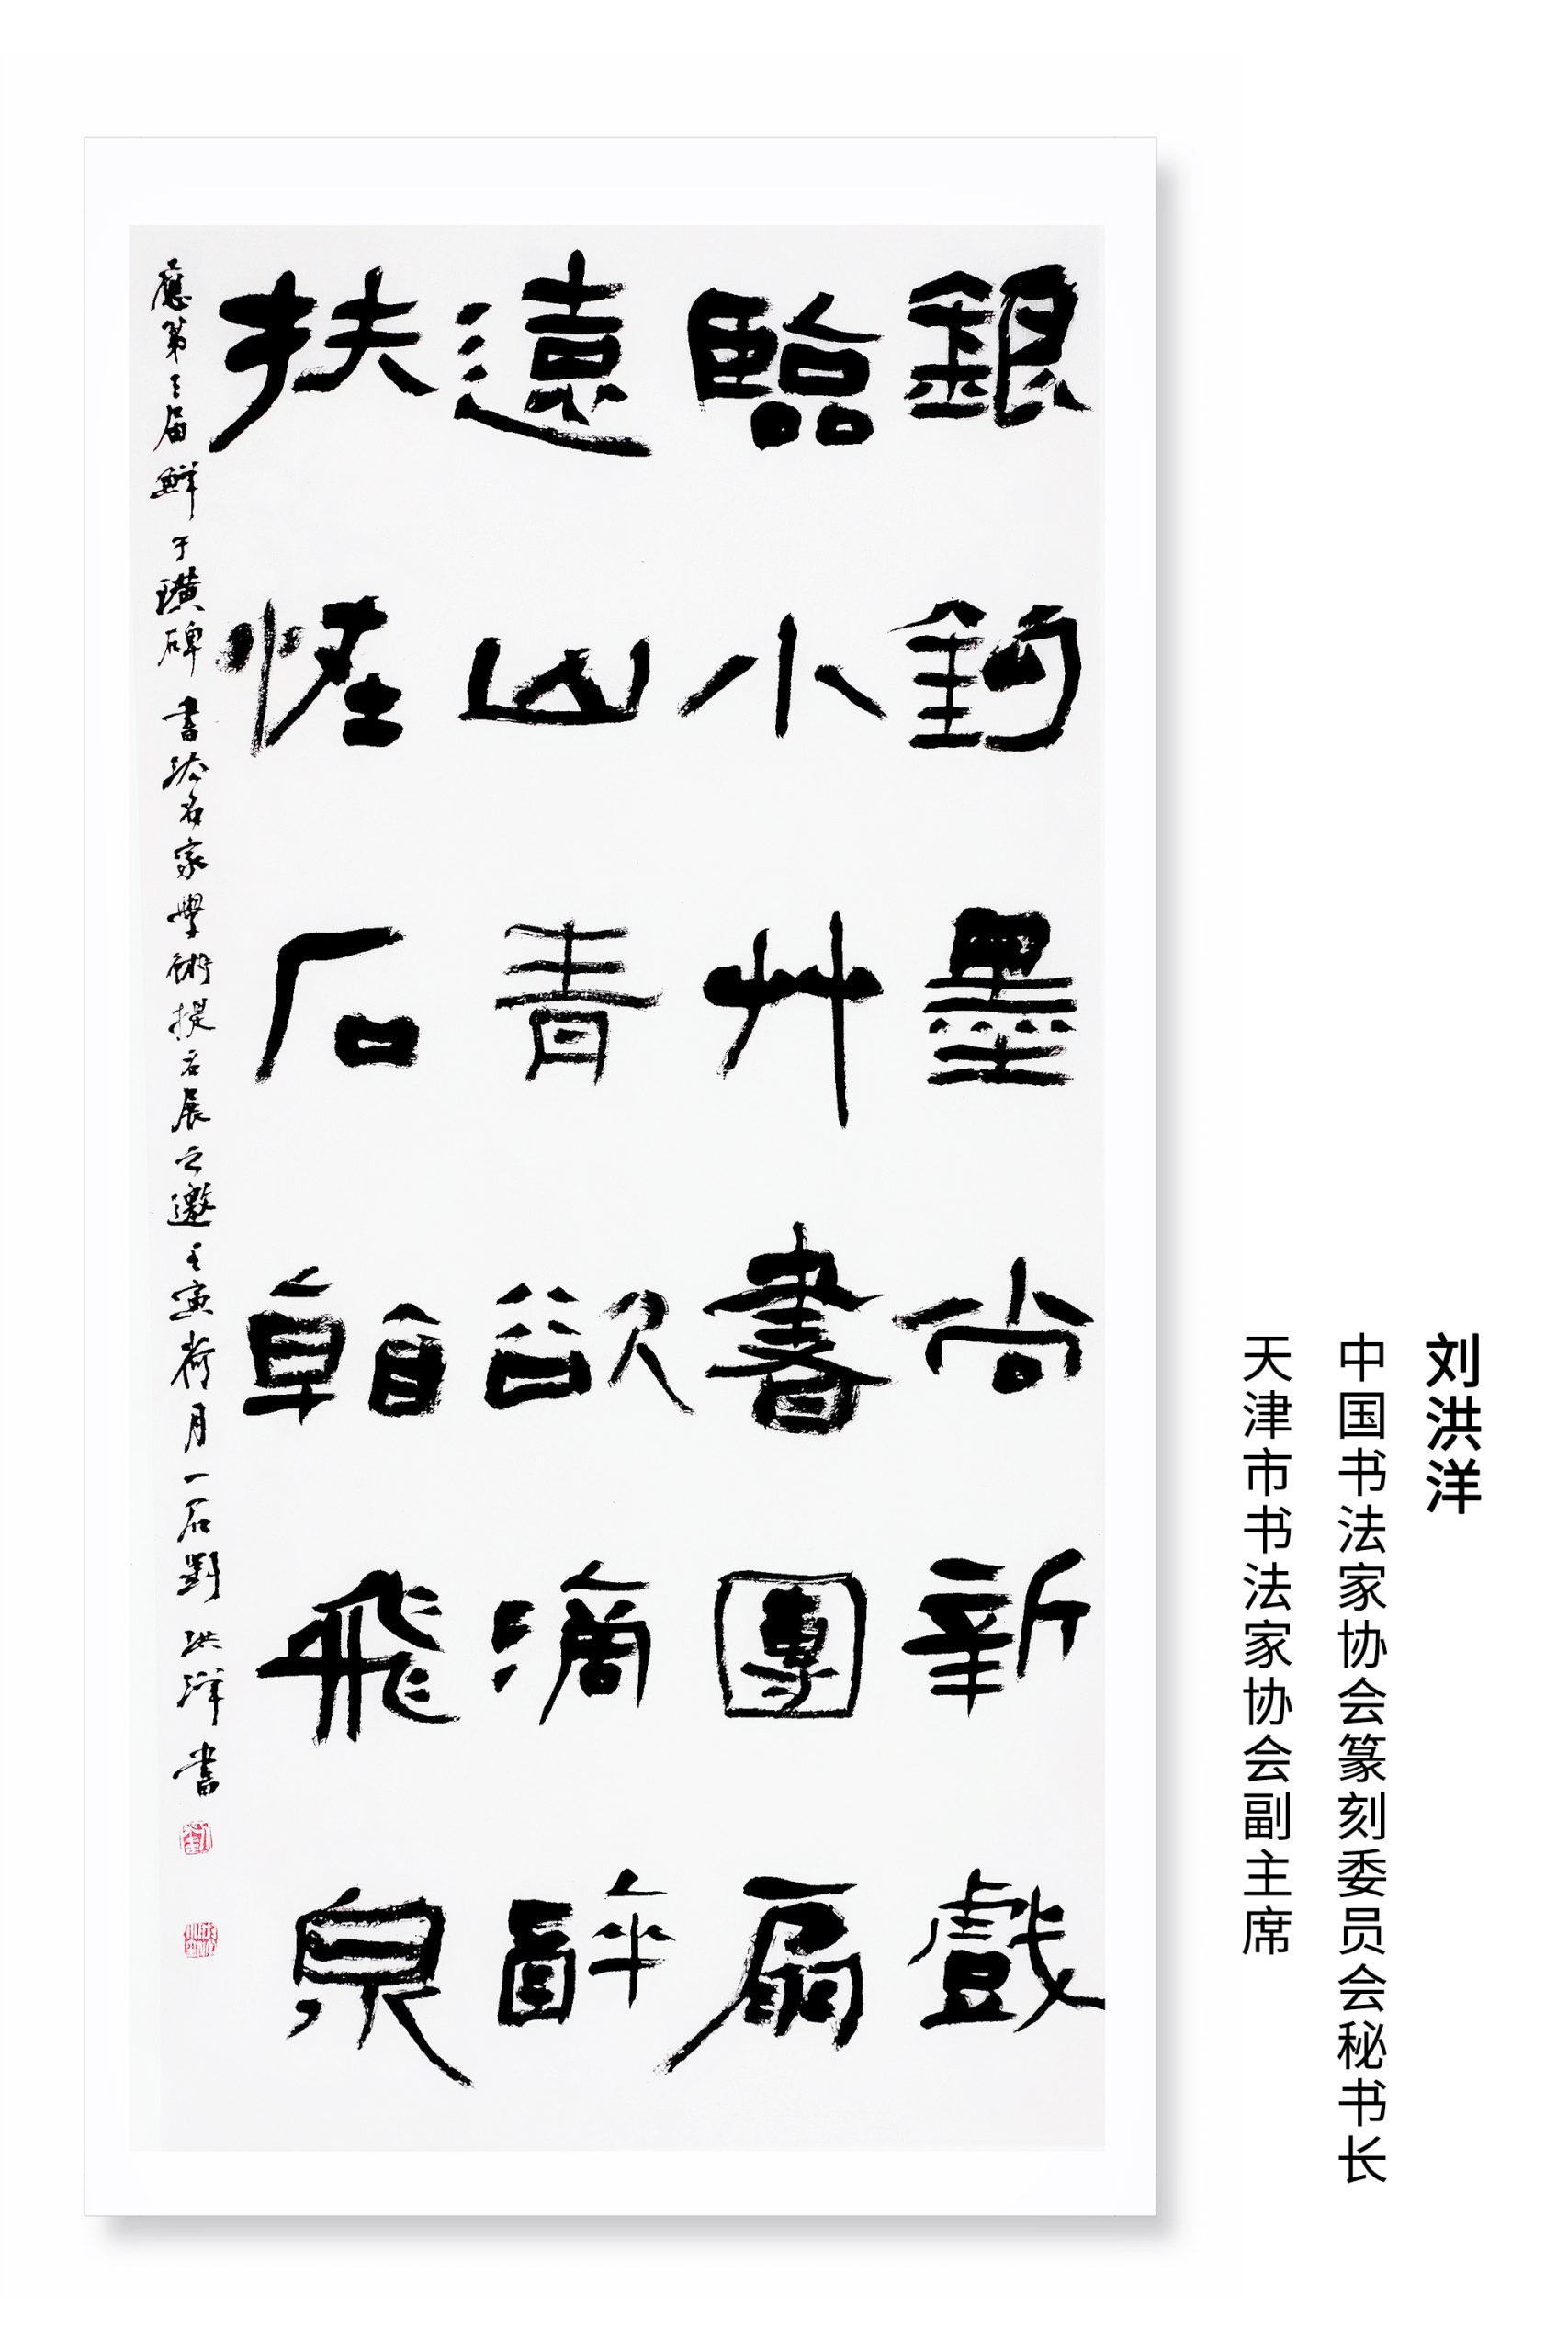 銀鉤墨尚新戲
臨小艸書團扇
遠山青欲滴醉
扶怪石翰飛泉
應第三届鮮于璜碑書法名家學術提名展之邀壬寅荷月一石劉洪洋書
刘洪洋
中国书法家协会篆刻委员会秘书长
天津市书法家协会副主席